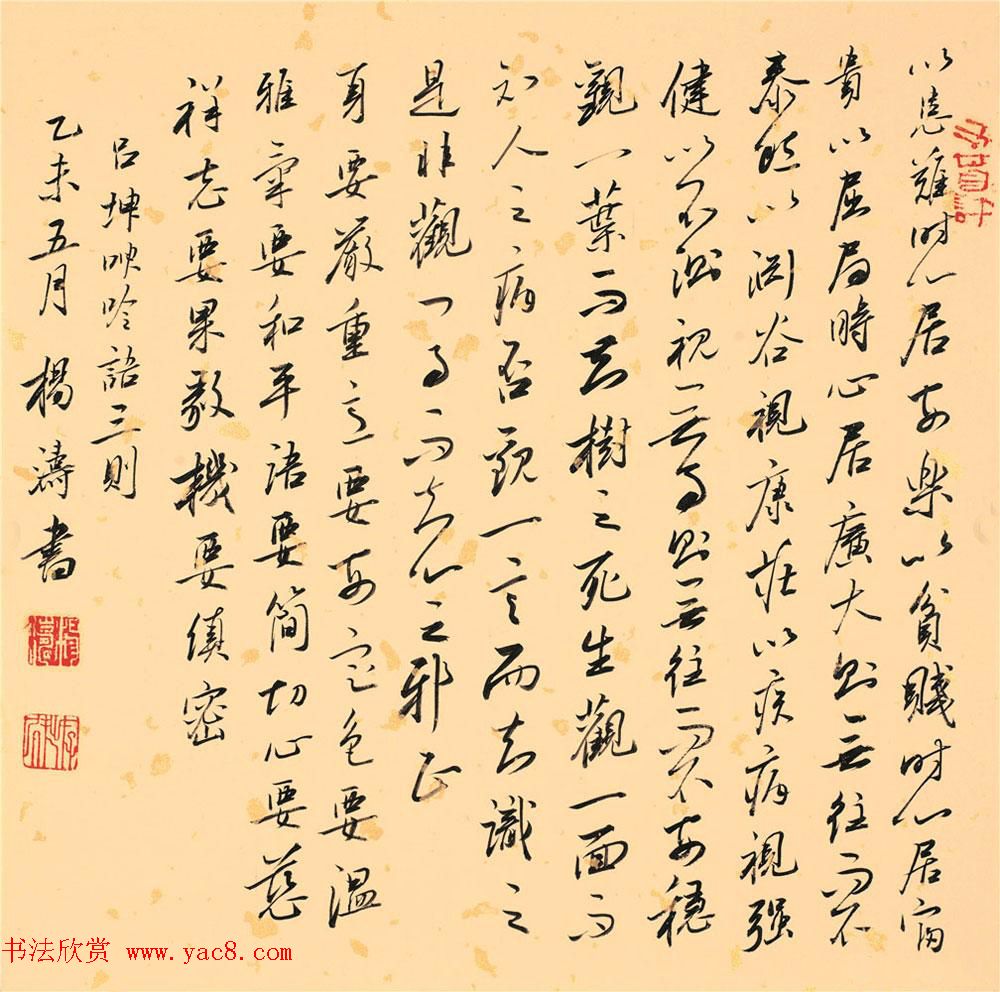 以患難时心居安樂以貧賤时心居富
貴以屈局時心居廣大則无往而不
泰然以渊谷視康莊以疾病視强
健以不測視无事則无往而不安穩
觀一葉而知樹之死生觀一面而
知人之病否觀一言而知識之
是非觀一事而知心之邪正
身要嚴重意要安定色要溫
雅氣要和平语要簡切心要慈
祥志要果毅機要縝密
吕坤呻吟語三則
乙未五月 楊濤書
书法欣赏 www.yac8.com